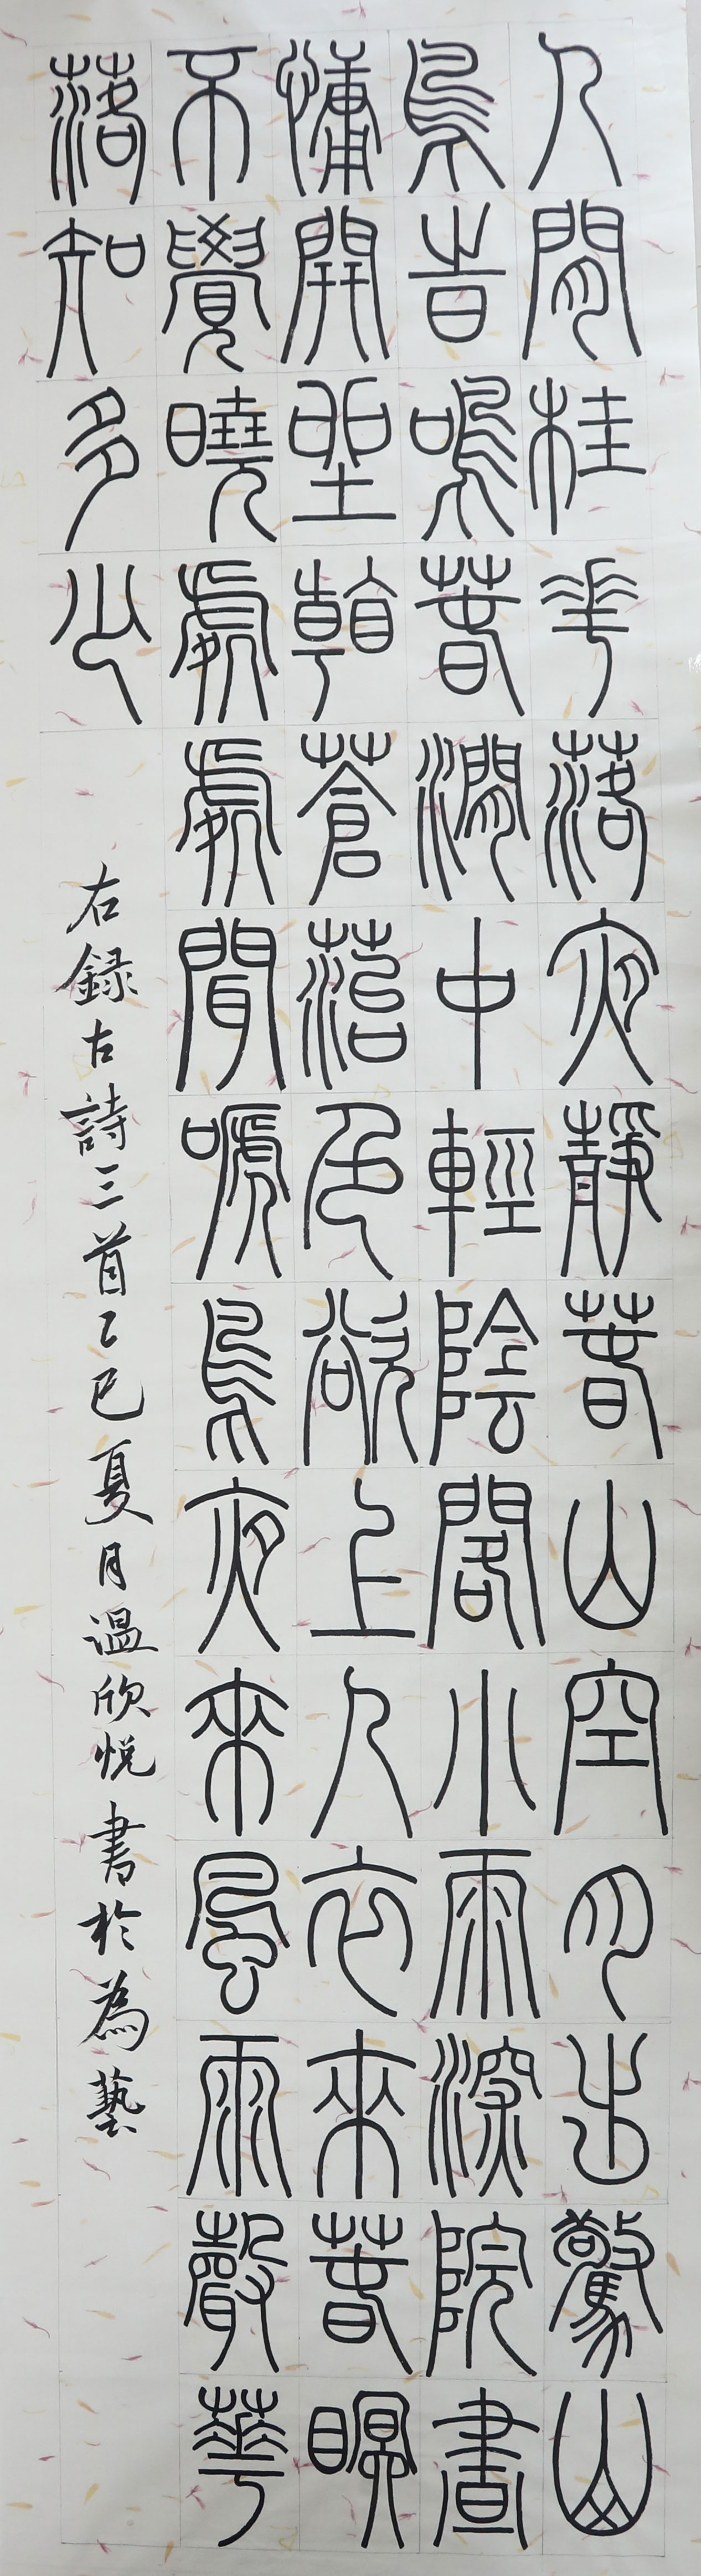 人閒桂華落夜靜春山空月出驚山
鳥時鳴春澗中輕陰閣小雨深院晝
慵開坐看蒼苔色欲上人衣來春眠
不覺曉處處聞嗁鳥夜來風雨聲華
落知多少
右録古詩三首乙巳夏月温欣悦書於為藝